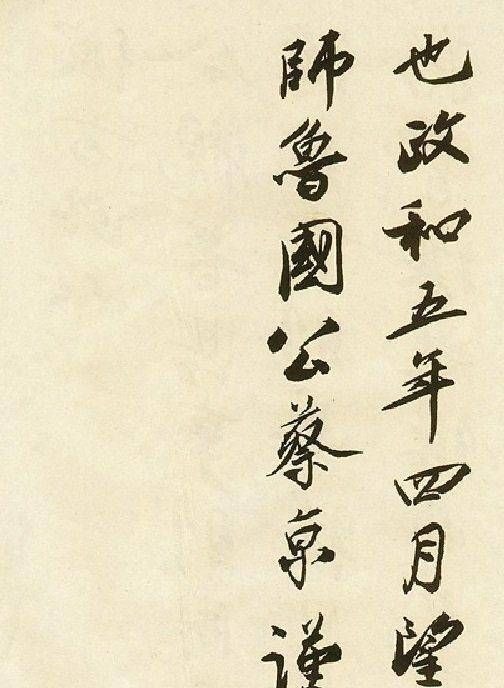 也政和五年四月望
師魯國公蔡京謹